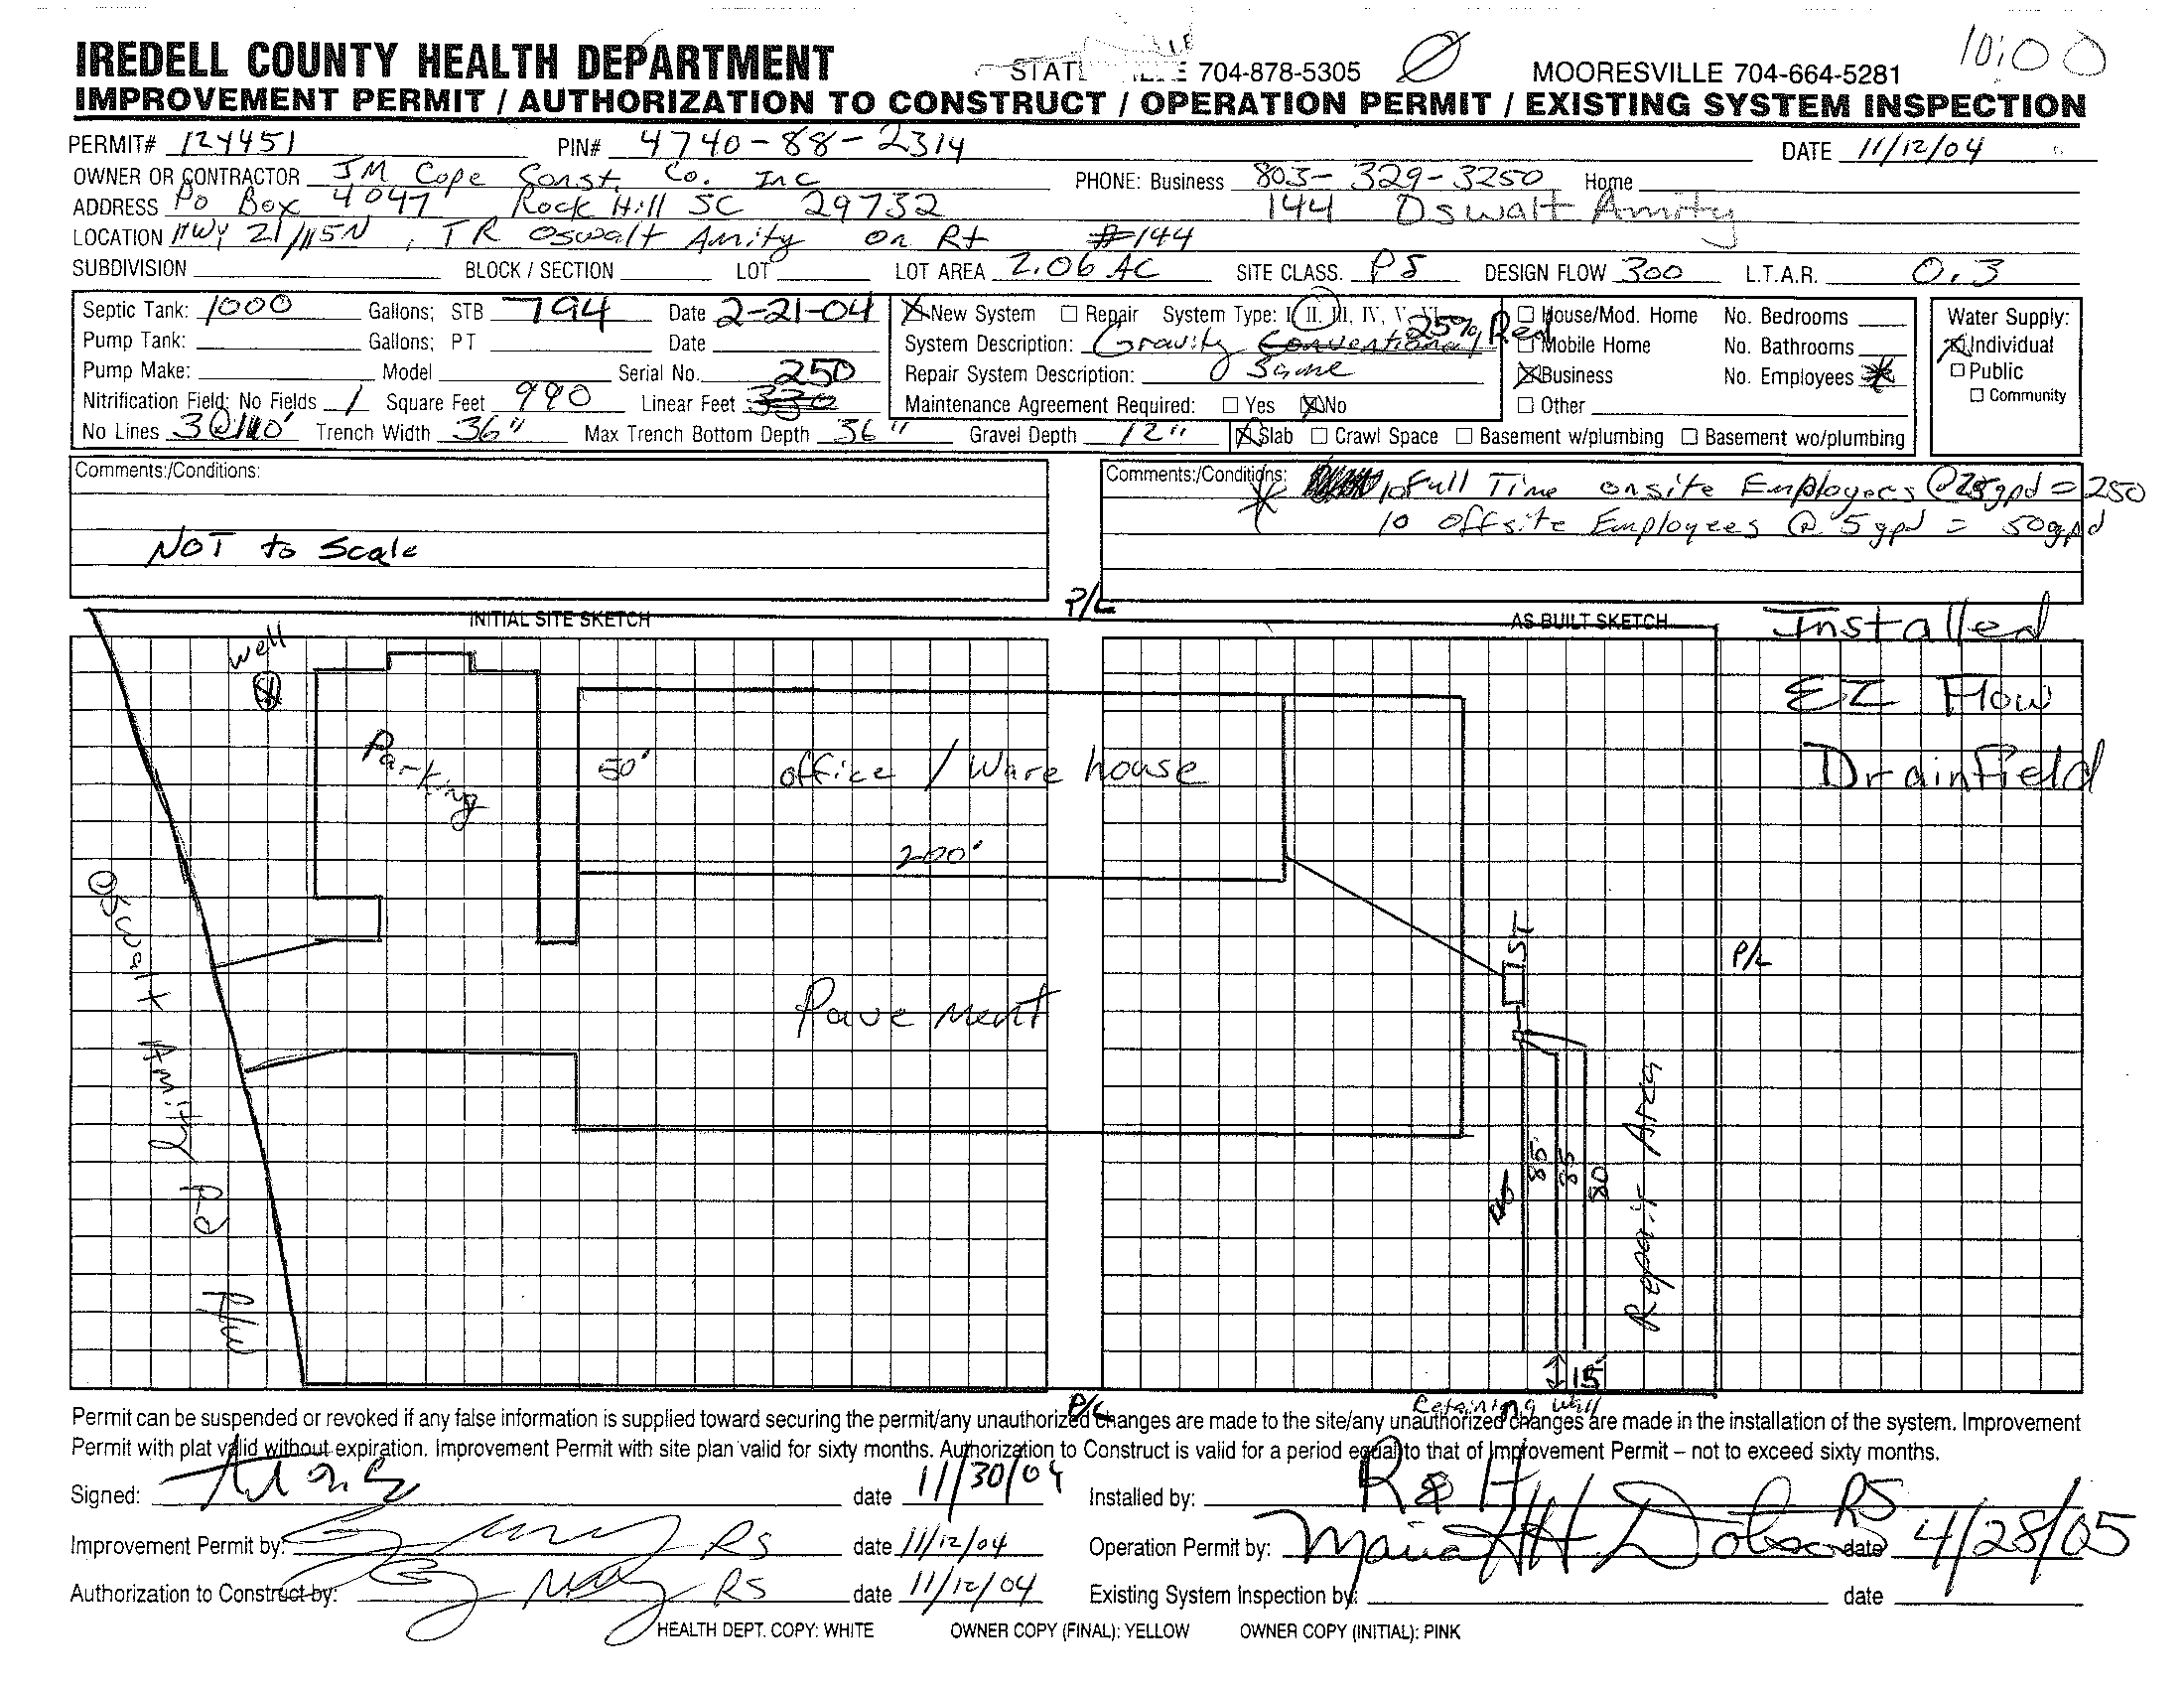 IREDELL COUNTY HEALTH DEPARTMENT 704-878-5305 MOORESVILLE 704-664-5281 10:00
IMPROVEMENT PERMIT / AUTHORIZATION TO CONSTRUCT / OPERATION PERMIT / EXISTING SYSTEM INSPECTION
PERMIT# 124451 PIN# 4740-88-2314 DATE 11/12/04
OWNER OR CONTRACTOR JM Cope Const. Co. Inc PHONE: Business 803-329-3250 Home
ADDRESS PO Box 4047 Rock Hill SC 29732 144 Oswalt Amity
LOCATION HWY 21/115N, TR Oswalt Amity on Rt #144
SUBDIVISION BLOCK / SECTION LOT LOT AREA 2.06 AC SITE CLASS. PS DESIGN FLOW 300 L.T.A.R. 0.3
Septic Tank: 1000 Gallons; STB 794 Date 2-21-04
Pump Tank: Gallons; PT Date
Pump Make: Model Serial No.
250
Nitrification Field: No Fields 1 Square Feet 990 Linear Feet 330
No Lines 3@110' Trench Width 36" Max Trench Bottom Depth 36" Gravel Depth 12"
New System Repair System Type: I, II, III, IV, V, VI
System Description: Gravity Conventional 25% Red
Repair System Description: Same
Maintenance Agreement Required: Yes No
House/Mod. Home No. Bedrooms
Mobile Home No. Bathrooms
Business No. Employees *
Other
Slab Crawl Space Basement w/plumbing Basement wo/plumbing
Water Supply:
Individual
Public
Community
Comments:/Conditions:
NOT to Scale
Comments:/Conditions:
* 10 Full Time onsite Employees @ 25gpd = 250
10 offsite Employees @ 5gpd = 50gpd
P/L
INITIAL SITE SKETCH
AS BUILT SKETCH
Installed
EZ Flow
Drainfield
well
Parking
50'
office / Warehouse
200'
Pavement
Oswalt Amity Rd
R/W
ST
P/L
85
85
80
Repair Area
15'
Retaining Wall
P/L
Permit can be suspended or revoked if any false information is supplied toward securing the permit/any unauthorized changes are made to the site/any unauthorized changes are made in the installation of the system. Improvement
Permit with plat valid without expiration. Improvement Permit with site plan valid for sixty months. Authorization to Construct is valid for a period equal to that of Improvement Permit – not to exceed sixty months.
Signed: date 11/30/04 Installed by: R & H
Improvement Permit by: RS date 11/12/04 Operation Permit by: Maria H. Dobson RS date 4/28/05
Authorization to Construct by: RS date 11/12/04 Existing System Inspection by: date
HEALTH DEPT. COPY: WHITE OWNER COPY (FINAL): YELLOW OWNER COPY (INITIAL): PINK